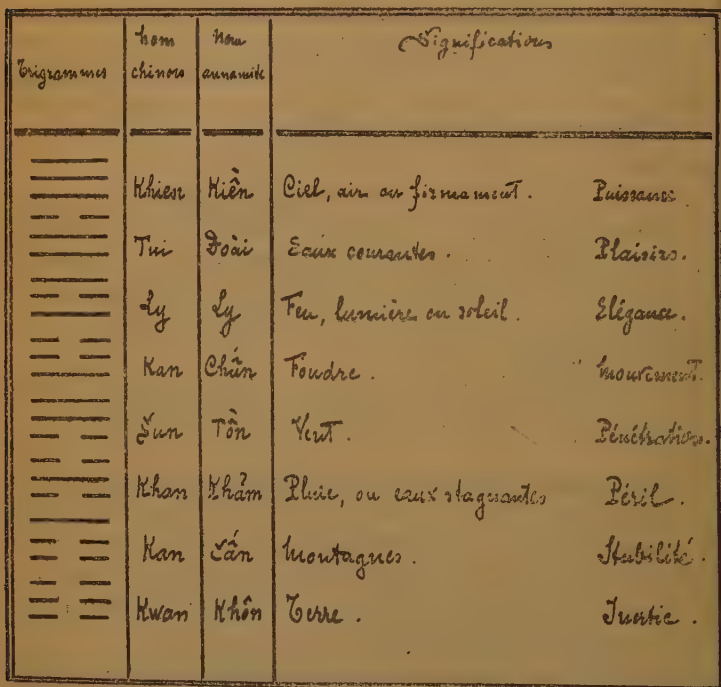 Trigrammes
Nom chinois
Nom annamite
Significations
Khien Kiền Ciel, air ou firmament. Puissance
Tui Đoài Eaux courantes. Plaisirs.
Ly Ly Feu, lumière ou soleil. Elégance.
Kan Chấn Foudre. Mouvement.
Sun Tốn Vent. Pénétration.
Khan Khảm Pluie, ou eaux stagnantes Péril.
Kan Cấn Montagnes. Stabilité.
Kwan Khôn Terre. Inertie.